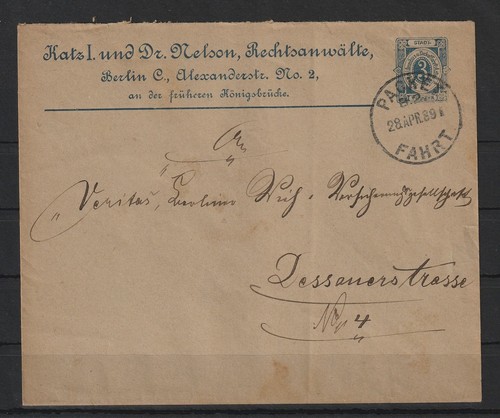 Katz I. und Dr. Nelson, Rechtsanwälte,
Berlin C., Alexanderstr. No. 2,
an der früheren Königsbrücke.
STADT-
3
PACKET
28.APR.89
FAHRT
An
"Veritas", Berliner Vieh-Versicherungsgesellschaft
Dessauerstrasse
No. 4